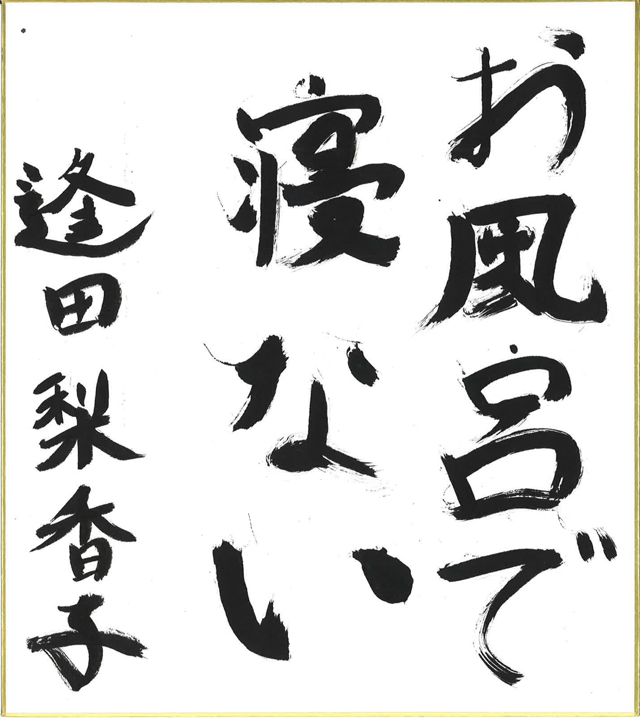 お風呂で
寝ない
逢田梨香子